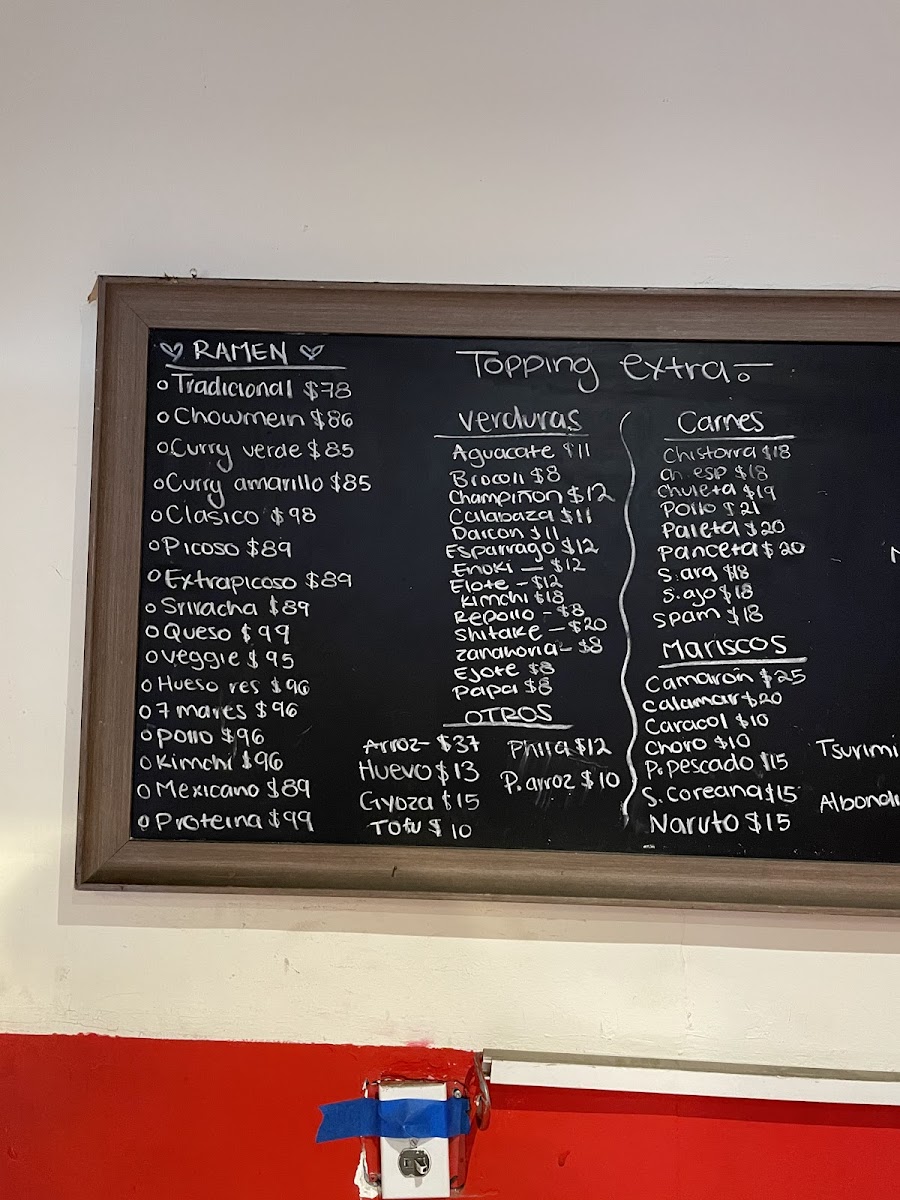 RAMEN
Tradicional $78
Chowmein $86
Curry verde $85
Curry amarillo $85
Clasico $98
Picoso $89
Extrapicoso $89
Sriracha $89
Queso $99
Veggie $95
Hueso res $96
7 mares $96
Pollo $96
Kimchi $96
Mexicano $89
Proteina $99
Topping extra:
Verduras
Aguacate $11
Brocoli $8
Champiñon $12
Calabaza $11
Daicon $11
Esparrago $12
Enoki — $12
Elote - $12
Kimchi $18
Repollo - $8
Shitake — $20
Zanahoria - $8
Ejote $8
Papa $8
OTROS
Arroz - $37
Huevo $13
Gyoza $15
Tofu $10
Phila $12
P. arroz $10
Carnes
Chistorra $18
Ch. esp $18
Chuleta $19
Pollo $21
Paleta $20
Panceta $20
S. arg $18
S. ajo $18
Spam $18
Mariscos
Camarón $25
Calamar $20
Caracol $10
Choro $10
P. pescado $15
S. Coreana $15
Naruto $15
Tsurimi